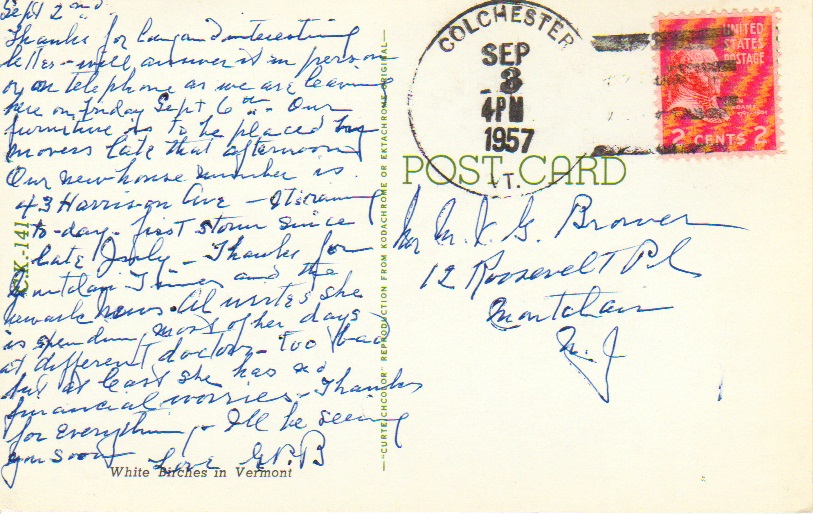 Sept 2nd
Thanks for long and interesting
letter - will answer it in person
or on telephone as we are leaving
here on Friday Sept 6th - Our
furniture is to be placed by
movers late that afternoon
Our new house number is
43 Harrison Ave - It's raining
to-day - first storm since
late July - Thanks for
Montclair Times and the
Newark News. Al writes she
is spending most of her days
at different doctors - too bad
but at least she has no
financial worries - Thanks
for everything - I'll be seeing
you soon Love G.P.B
White Birches in Vermont
C.K.-141
"CURTEICHCOLOR" REPRODUCTION FROM KODACHROME OR EKTACHROME ORIGINAL
COLCHESTER
SEP
3
4PM
1957
VT.
UNITED
STATES
POSTAGE
ADAMS
2 CENTS 2
POST CARD
Mr. G. Brower
12 Roosevelt Pl
Montclair
N.J